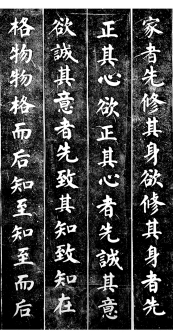 家者先修其身欲修其身者先
正其心欲正其心者先誠其意
欲誠其意者先致其知致知在
格物物格而后知至知至而后